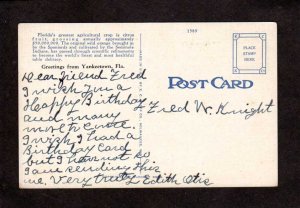 Florida's greatest agricultural crop is citrus
fruit, grossing annually approximately
$50,000,000. The original wild orange brought in
by the Spaniards and cultivated by the Seminole
Indians, has passed through scientific refinements
to become the world's finest and most healthful
table delicacy.
Greetings from Yankeetown, Fla.
1589
PLACE
STAMP
HERE
POST CARD
Dear friend Fred
I wish you a
Happy Birthday
and many
more to come.
I wish I had a
Birthday card
but I have not so
I am sending this
one. Very truly Edith Otis
Fred W. Knight